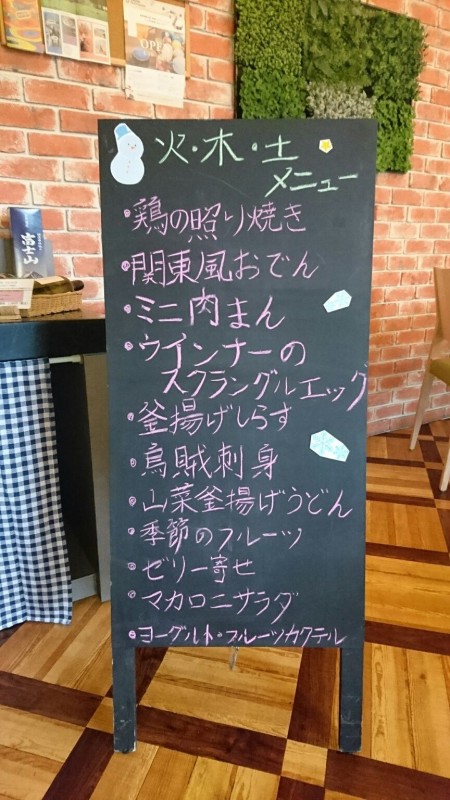 OPEN
富士山
火・木・土
メニュー
・鶏の照り焼き
・関東風おでん
・ミニ肉まん
・ウインナーの
スクランブルエッグ
・釜揚げしらす
・烏賊刺身
・山菜釜揚げうどん
・季節のフルーツ
・ゼリー寄せ
・マカロニサラダ
・ヨーグルト・フルーツカクテル